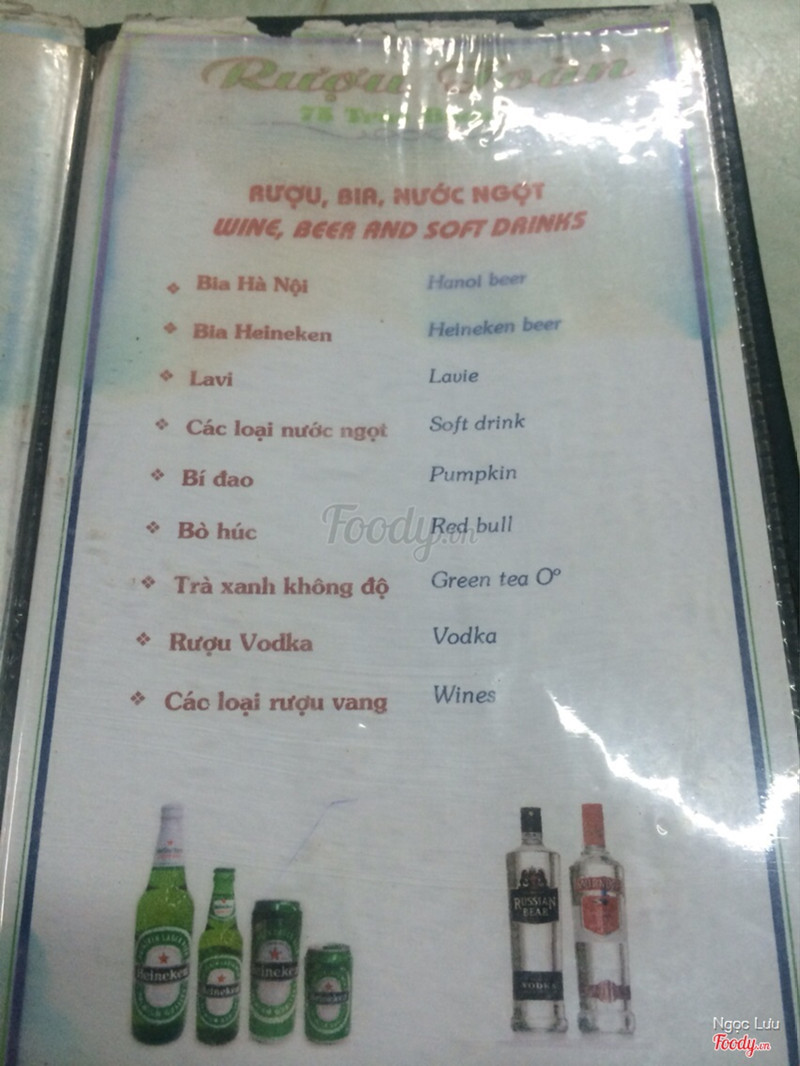 Rượu
75
RƯỢU, BIA, NƯỚC NGỌT
WINE, BEER AND SOFT DRINKS
Bia Hà Nội Hanoi beer
Bia Heineken Heineken beer
Lavi Lavie
Các loại nước ngọt Soft drink
Bí đao Pumpkin
Bò húc Red bull
Trà xanh không độ Green tea Oº
Rượu Vodka Vodka
Các loại rượu vang Wines
Foody.vn
Heineken
Heineken
Heineken
Heineken
RUSSIAN
BEAR
VODKA
Ngọc Lưu
Foody.vn